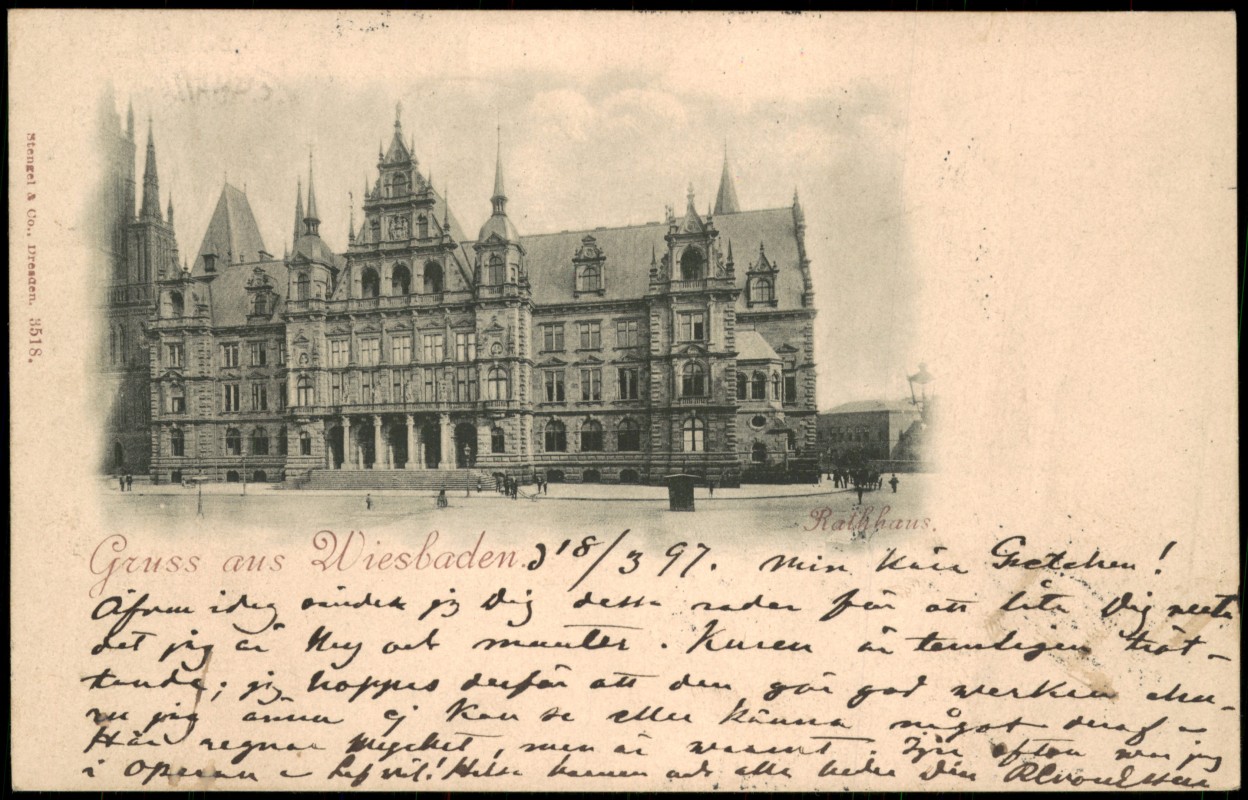 Stengel & Co., Dresden. 3518.
Rathhaus.
Gruss aus Wiesbaden.
d 18/3 97. Min kära Gretchen!
Äfven idag sänder jg Dig dessa rader för att låta Dig veta
det jag är kry och munter. Kuren är temligen tröt-
tande; jg hoppas derför att den gör god verkan ehu-
ru jag ännu ej kan se eller känna något deraf –
Här regnar mycket, men är varmt. I går afton var jag
i Operan – Lef väl! Helsa barnen och alla heder Din